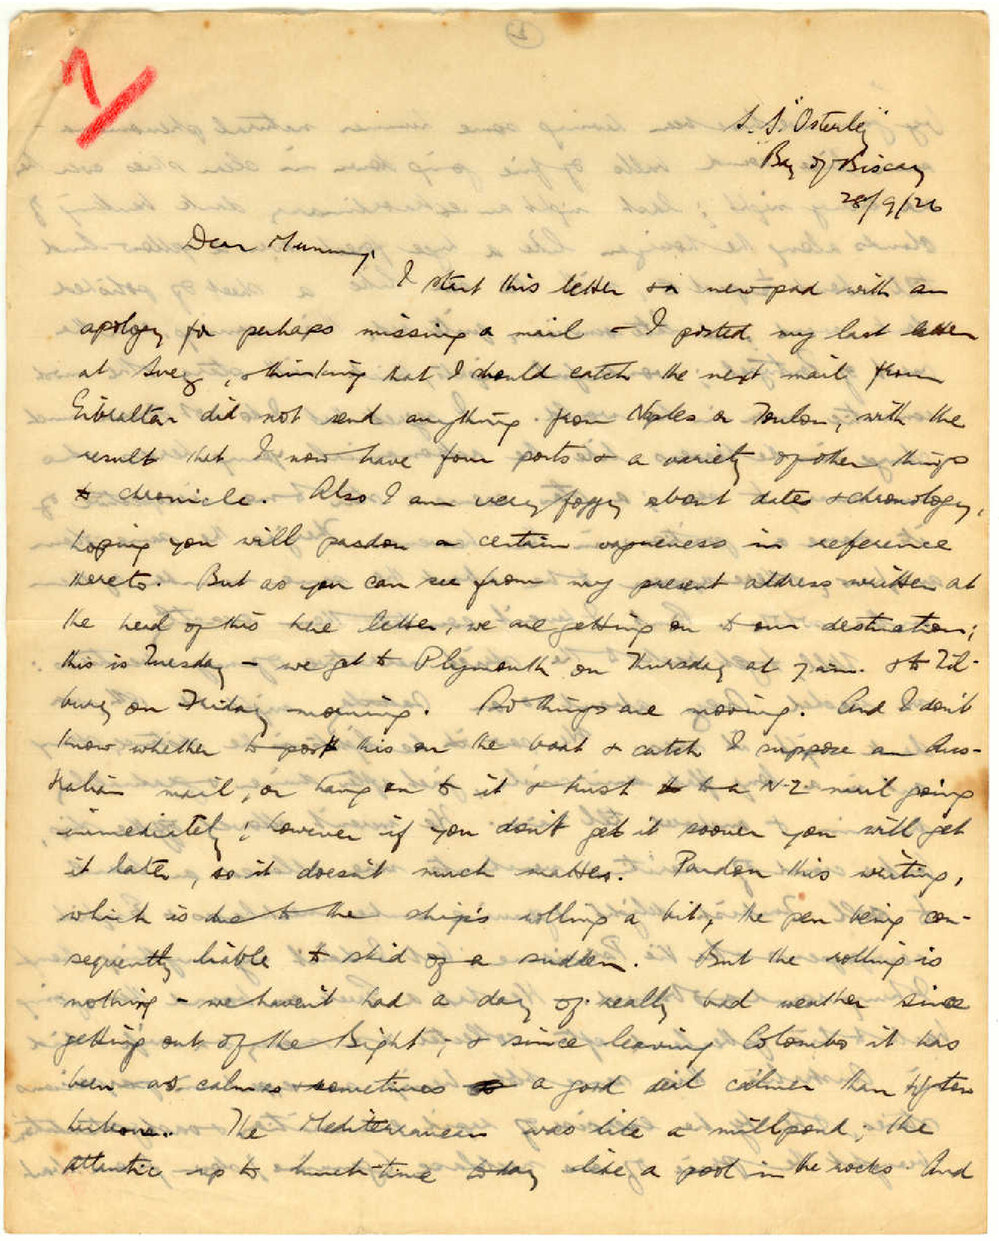 7
S.S. "Osterley"
Bay of Biscay
28/9/26
Dear Mummy,
I start this letter & a new pad with an
apology for perhaps missing a mail – I posted my last letter
at Suez, & thinking that I should catch the next mail from
Gibraltar did not send anything from Naples or Toulon, with the
result that I now have four ports & a variety of other things
to chronicle. Also I am very foggy about dates & chronology,
hoping you will pardon a certain vagueness in reference
thereto. But as you can see from my present address written at
the head of this here letter, we are getting on to our destination;
this is Tuesday – we get to Plymouth on Thursday at 7 a.m. & to Til-
bury on Friday morning. So things are moving. And I don't
know whether to post this on the boat & catch I suppose an Aus-
tralian mail, or hang on to it & trust to a N.Z. mail going
immediately; however if you don't get it sooner you will get
it later, so it doesn't much matter. Pardon this writing,
which is due to the ship's rolling a bit, the pen being con-
sequently liable to skid of a sudden. But the rolling is
nothing – we haven't had a day of really bad weather since
getting out of the Bight, & since leaving Colombo it has
been as calm as & sometimes a good deal calmer than Lyttelton
harbour. The Mediterranean was like a millpond; the
Atlantic up to lunch-time today like a pool in the rocks. And